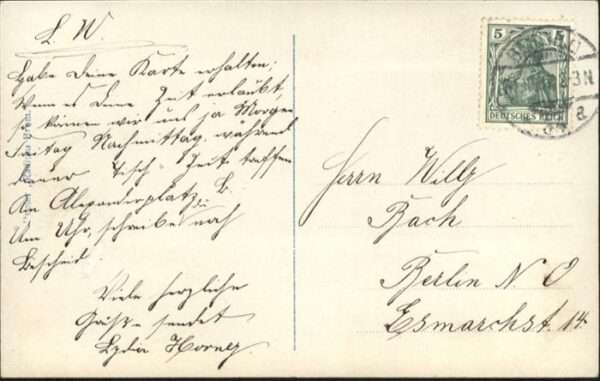 L. W.
Habe Deine Karte erhalten;
Wenn es deine Zeit erlaubt,
so können wir uns ja Morgen
Freitag Nachmittag während
deiner Tisch-Zeit treffen
Am Alexanderplatz
Um Uhr, schreibe noch
Bescheid
Viele herzliche
Grüße sendet
Lydia
5
DEUTSCHES REICH
Herrn Willy
Bach
Berlin N O
Esmarchst. 14.